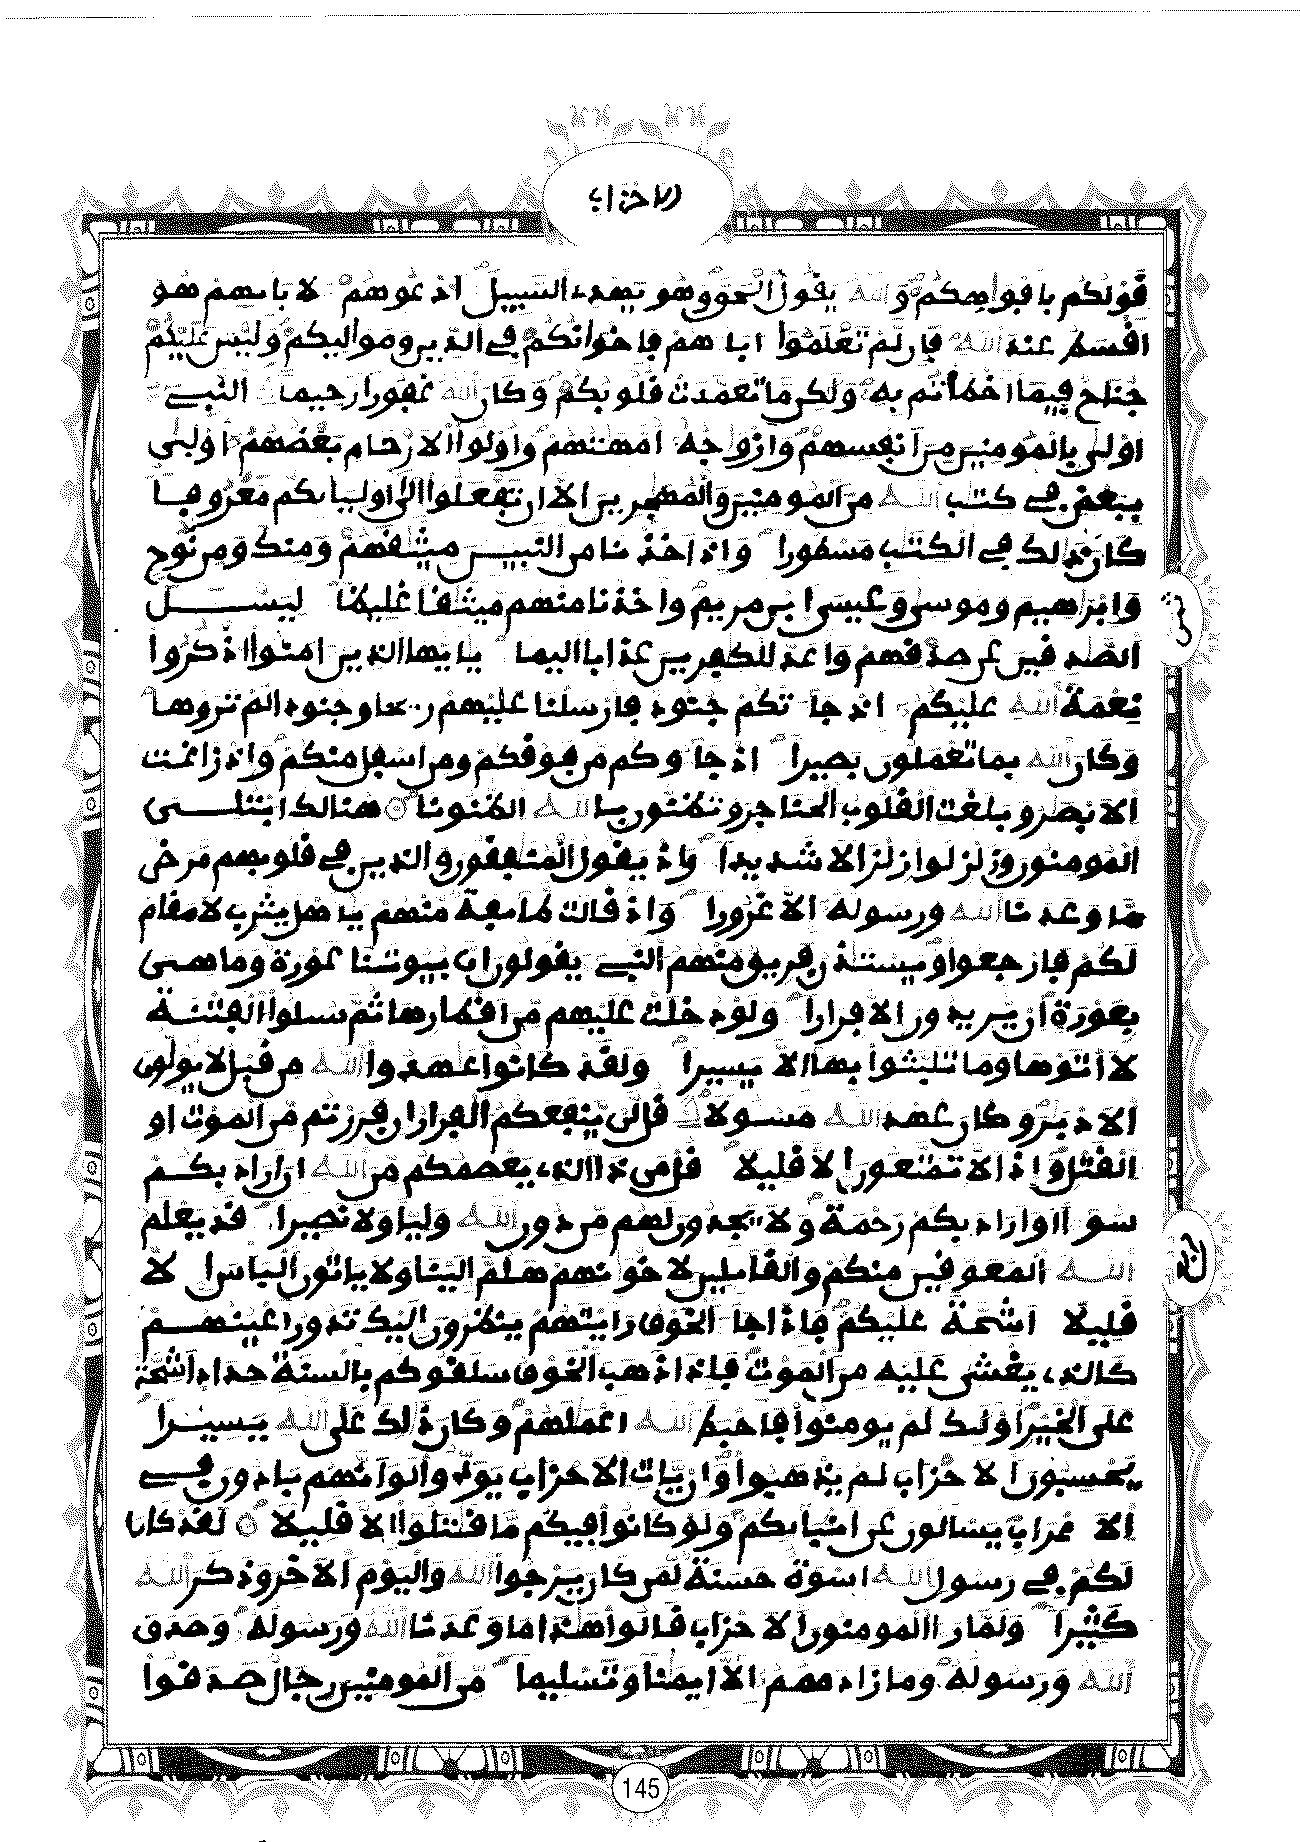 الاحزاب
قولكم بافوهكم والله يقول الحق وهو يهدے السبيل ادعوهم لابايهم هو
افسط عند الله فإن لم تعلموا اباهم فإخوانكم في الدين ومواليكم وليس عليكم
جناح فيما اخطاتم به ولكن ما تعمدت قلوبكم وكان الله غفورا رحيما النبے
اولى بالمومنين من انفسهم وازوجه امهتهم واولوا الارحام بعضهم اولى
ببعض في كتب الله من المومنين والمهجرين الا ان تفعلوا الى اوليايكم معروفا
كان ذلك في الكتب مسطورا واذ اخذنا من النبيين ميثقهم ومنك ومن نوح
وابرهيم وموسى وعيسى ابن مريم واخذنا منهم ميثقا غليظا ليسل
الصدقين عن صدقهم واعد للكفرين عذابا اليما يايها الذين امنوا اذكروا
نعمة الله عليكم اذ جاتكم جنود فارسلنا عليهم ريحا وجنودا لم تروها
وكان الله بما تعملون بصيرا اذ جاوكم من فوقكم ومن اسفل منكم واذ زاغت
الابصر وبلغت القلوب الحناجر وتظنون بالله الظنونا هنالك ابتلى
المومنون وزلزلوا زلزالا شديدا واذ يقول المنفقون والذين في قلوبهم مرض
ما وعدنا الله ورسوله الا غرورا واذ قالت طايفة منهم ياهل يثرب لا مقام
لكم فارجعوا ويستذن فريق منهم النبے يقولون ان بيوتنا عورة وما هي
بعورة ان يريدون الا فرارا ولو دخلت عليهم من اقطارها ثم سيلوا الفتنة
لاتوها وما تلبثوا بها الا يسيرا ولقد كانوا عهدوا الله من قبل لا يولون
الادبر وكان عهد الله مسولا قل لن ينفعكم الفرار ان فررتم من الموت او
القتل واذا لا تمتعون الا قليلا قل من ذا الذے يعصمكم من الله ان اراد بكم
سوا او اراد بكم رحمة ولا يجدون لهم من دون الله وليا ولا نصيرا قد يعلم
الله المعوقين منكم والقايلين لاخونهم هلم الينا ولا ياتون الباس الا
قليلا اشحة عليكم فإذا جا الخوف رايتهم ينظرون اليك تدور اعينهم
كالذے يغشى عليه من الموت فإذا ذهب الخوف سلقوكم بالسنة حداد اشحة
على الخير اوليك لم يومنوا فاحبط الله اعملهم وكان ذلك على الله يسيرا
يحسبون الاحزاب لم يذهبوا وان يات الاحزاب يودوا لو انهم بادون في
الاعراب يسالون عن انبايكم ولو كانوا فيكم ما قتلوا الا قليلا لقد كان
لكم في رسول الله اسوة حسنة لمن كان يرجوا الله واليوم الاخر وذكر الله
كثيرا ولما را المومنون الاحزاب قالوا هذا ما وعدنا الله ورسوله وصدق
الله ورسوله وما زادهم الا ايمنا وتسليما من المومنين رجال صدقوا
145